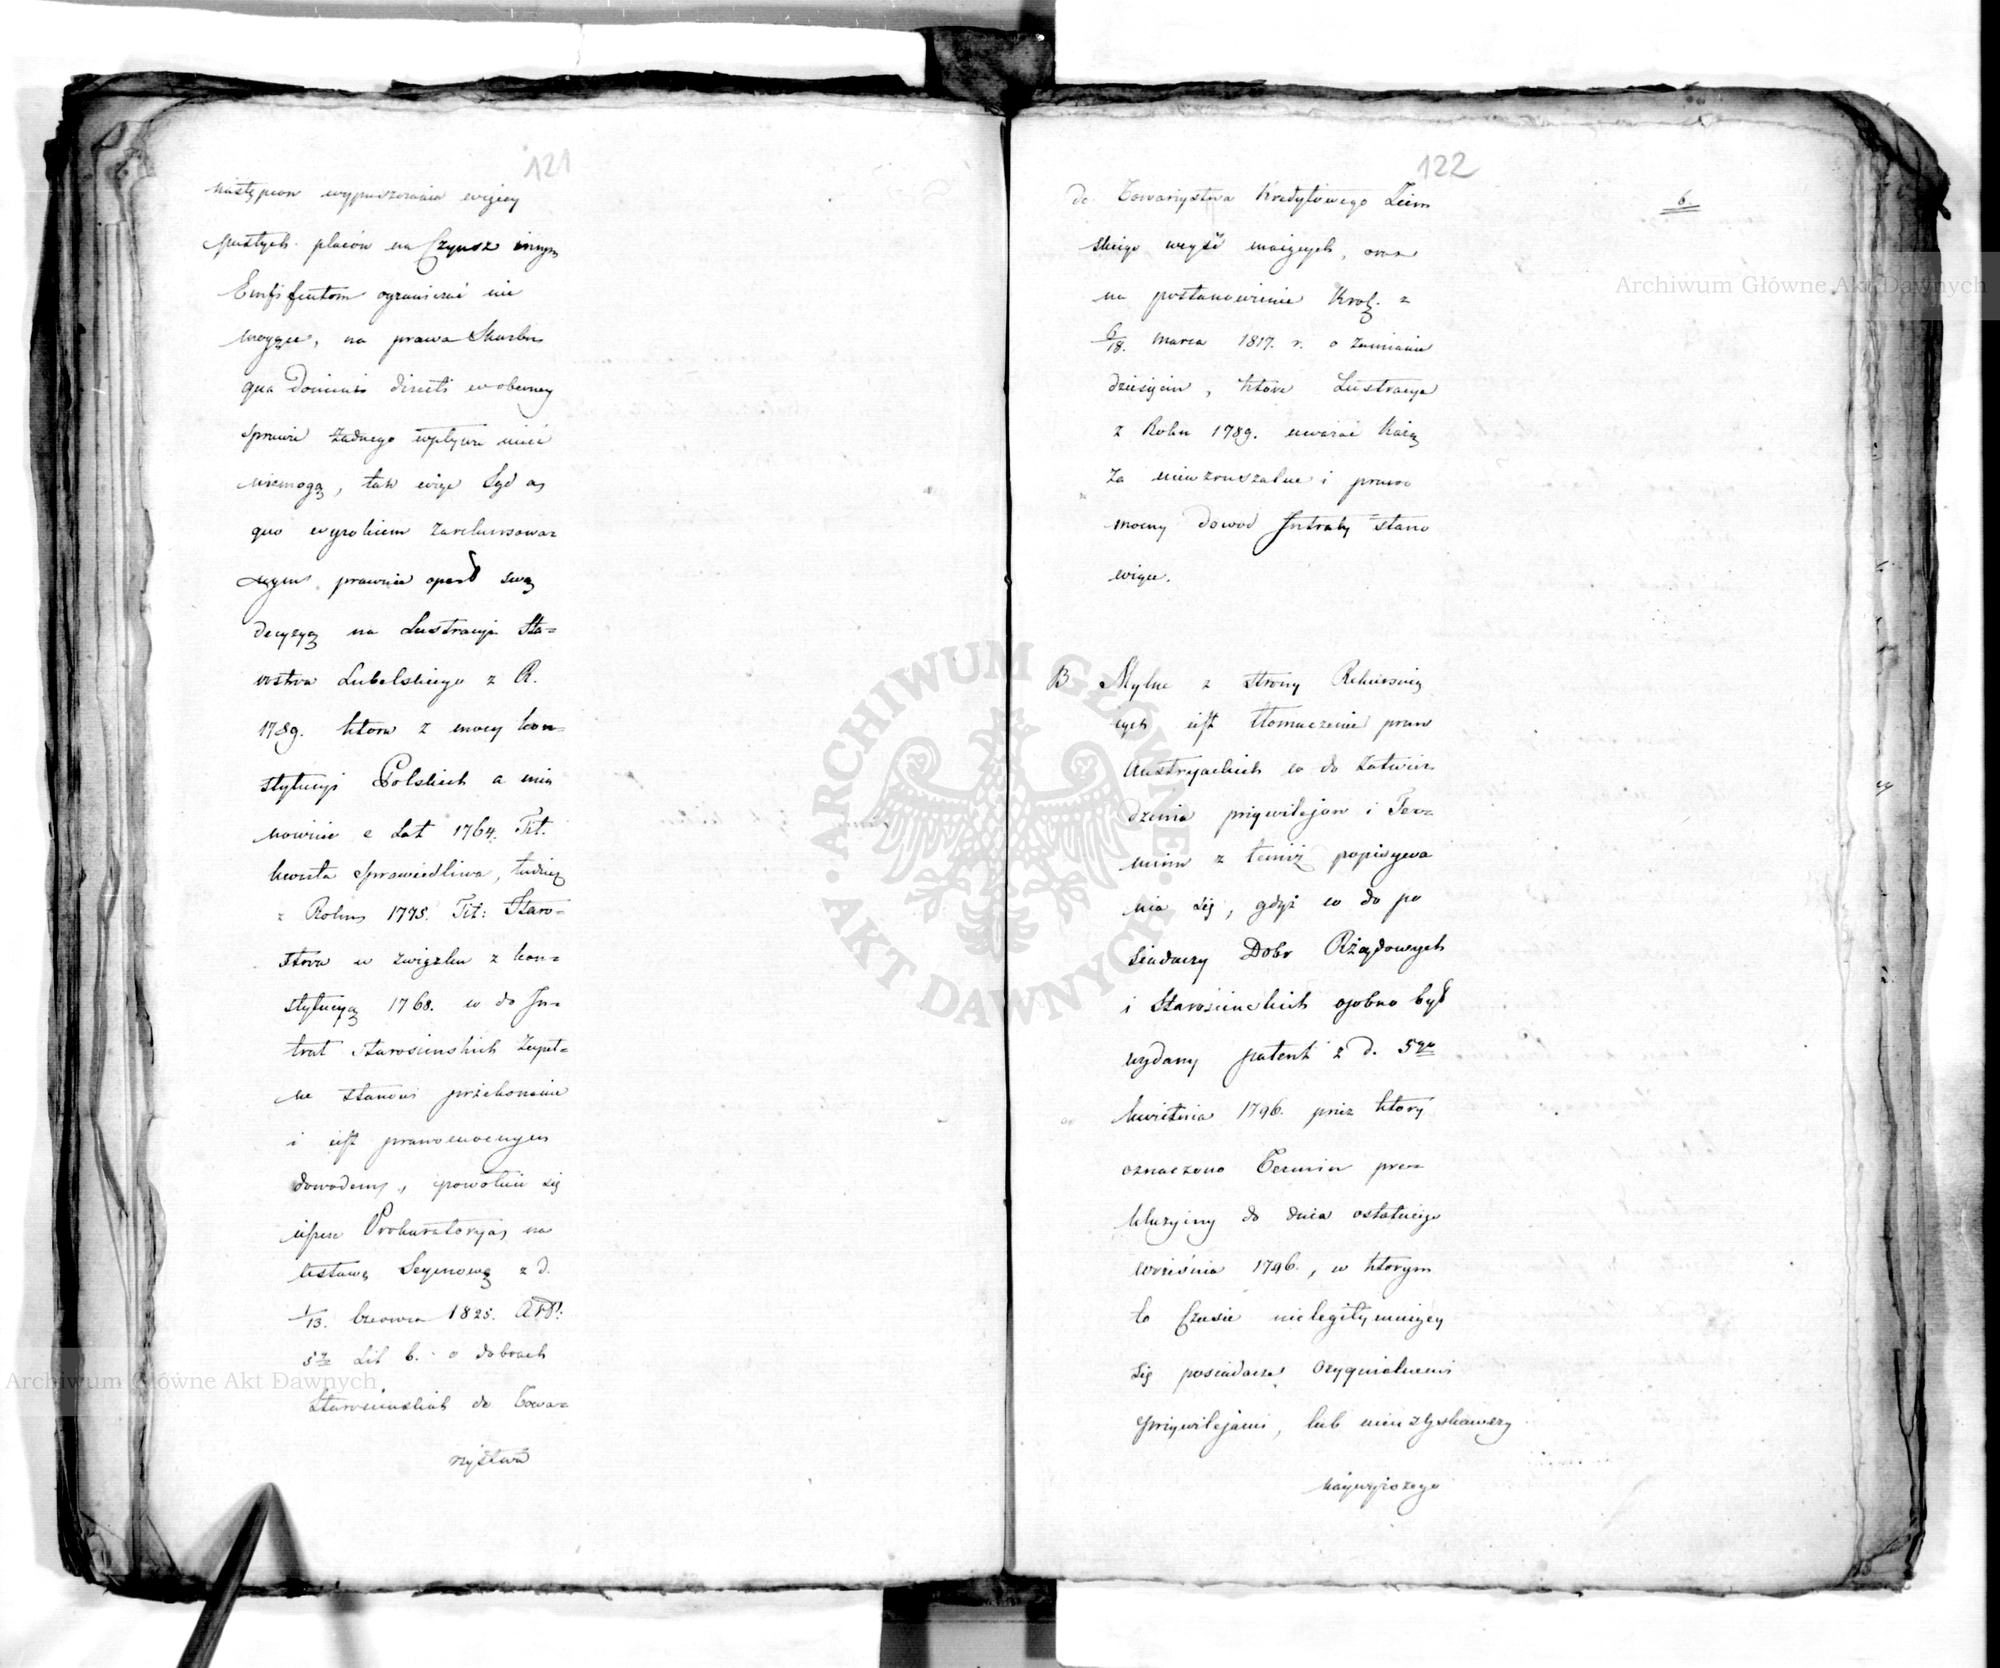 121
następców wypuszczania więcey
pustych placów na Czynsz innym
Emfiteutom ograniczać nie
mogące, na prawa Skarbu
qua Domini directi w obecney
sprawie żadnego wpływu mieć
niemogą, tak więc Sąd a,
quo wyrokiem zarekursowa=
nym prawnie oparł swą
decyzyą na Lustracyi Sta=
rostwa Lubelskiego z R.
1789. która z mocy kon=
stytucyi Polskich a mia
nowicie z Lat 1764. Tit.
kwarta sprawiedliwa, tudzież
z Roku 1775. Tit: Staro=
stwa w związku z kon=
stytucyą 1768. co do In=
trat Starościńskich zupeł=
ne stanowi przekonanie
i iest prawomocnym
dowodem, powołuie się
ieszcze Prokuratorya na
Ustawę Seymową z d.
1/13. Czerwca 1825. Art:
5º Lit b. o dobrach
Starościńskich do Towa=
rzystwa
122
6.
do Towarzystwa Kredytowego Ziem
skiego weyść maiących, oraz
na postanowienie Król. z
6/18. Marca 1817. r. o zamianie
dziesięcin, które Lustracye
z Roku 1789. uważać każą
za niewzruszalne i prawo
mocny dowód Intraty stano
wiące.
B Mylne z strony Rekuruią
cych iest tłomaczenie praw
Austryackich co do zatwier
dzenia przywilejów i Ter=
minu z temiż popisywa
nia się, gdyż co do po
siadaczy Dobr Rządowych
i Starościńskich osobno był
wydany patent z d. 5go
kwietnia 1796. przez który
oznaczono Termin pre=
kluzyiny do dnia ostatniego
września 1796., w którym
to Czasie nielegitymuiący
się posiadacze oryginalnemi
przywilejami, lub nieuzyskawszy
naywyższego
Archiwum Główne Akt Dawnych
Archiwum Główne Akt Dawnych
ARCHIWUM GŁÓWNE · AKT DAWNYCH ·